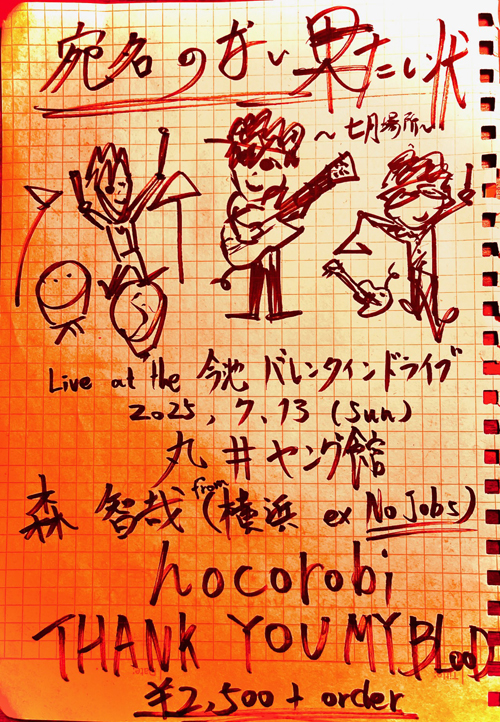 宛名のない果たし状
～七月場所～
Live at the 今池 バレンタインドライブ
2025, 7, 13 (Sun)
丸井ヤング館
森 智哉 (from 横浜 ex No Jobs)
hocorobi
THANK YOU MY BLooD
¥2,500 + order